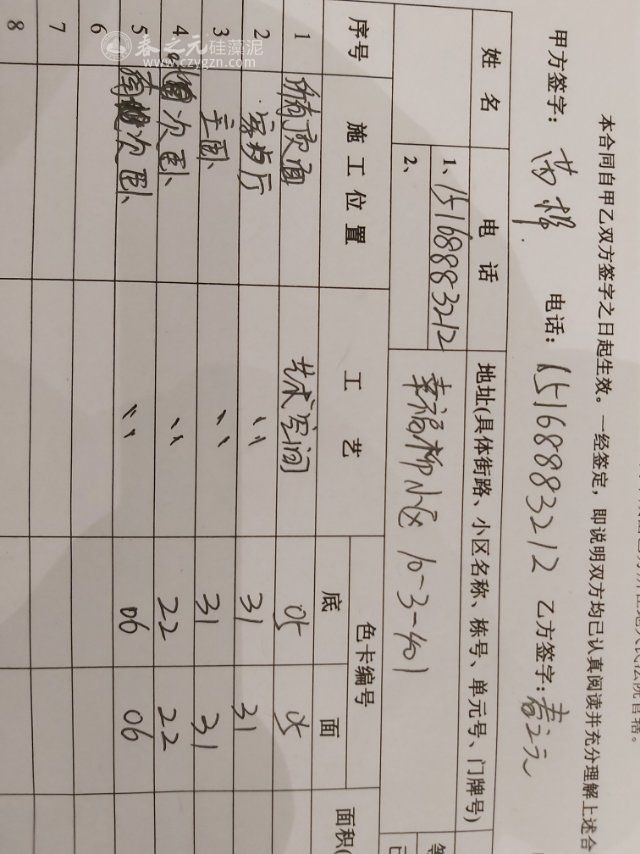 本合同自甲乙双方签字之日起生效。一经签定，即说明双方均已认真阅读并充分理解上述合
甲方签字： 电话：15168883212 乙方签字：春之元
姓名 电话 地址(具体街路、小区名称、栋号、单元号、门牌号)
1、15168883212 幸福柳小区 10-3-401
2、
序号 施工位置 工艺 色卡编号 面积(
底 面
1 所有顶面 艺术空间 05 05
2 客与厅 〃 31 31
3 主卧、 〃 31 31
4 次卧、 〃 22 22
5 次卧、 〃 06 06
6
7
8
春之元硅藻泥
www.czygzn.com